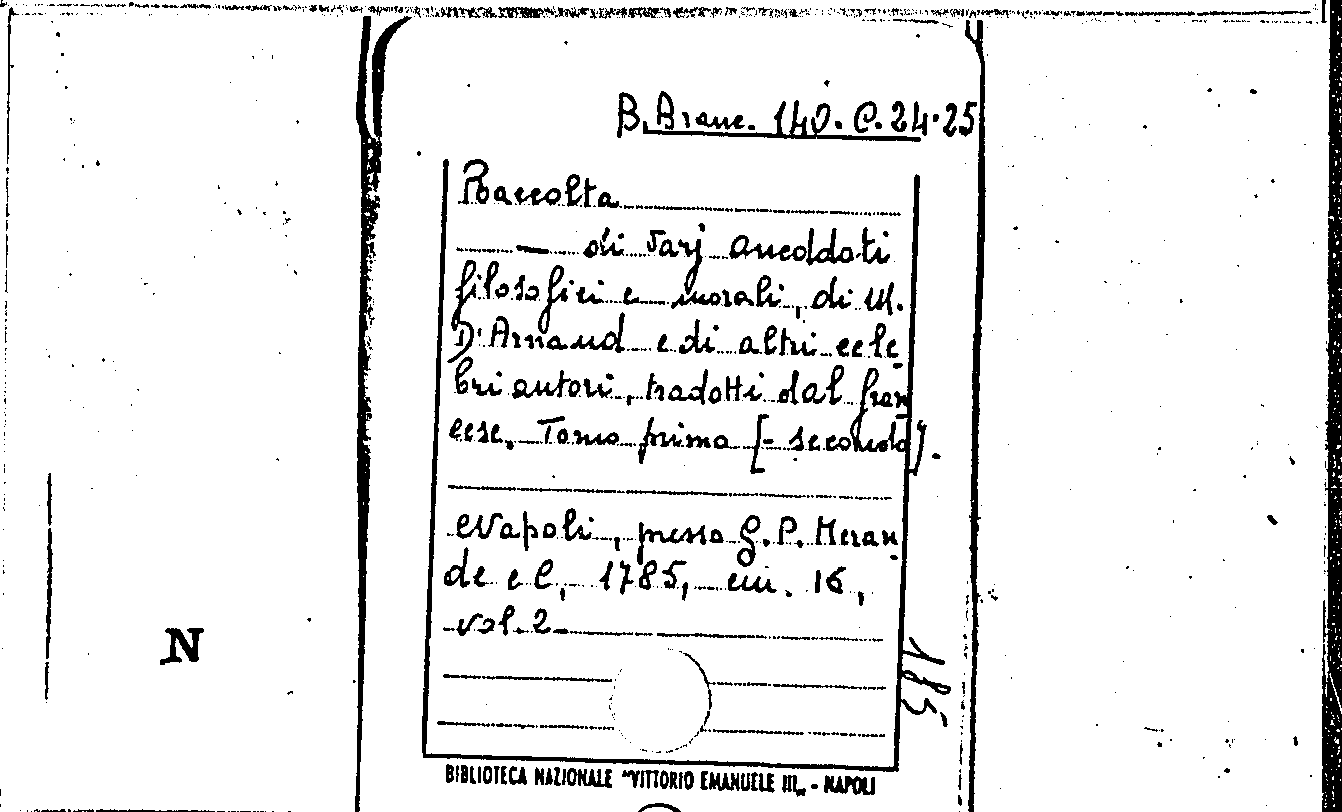 B. Branc. 140. C. 24-25
Raccolta
— di varj aneddoti
filosofici e morali, di M.
D'Arnaud e di altri cele
bri autori, tradotti dal fran
cese. Tomo primo [- secondo].
Napoli, presso G. P. Meran
de e C., 1785, cm. 16,
vol. 2
185
N
BIBLIOTECA NAZIONALE "VITTORIO EMANUELE III„ - NAPOLI